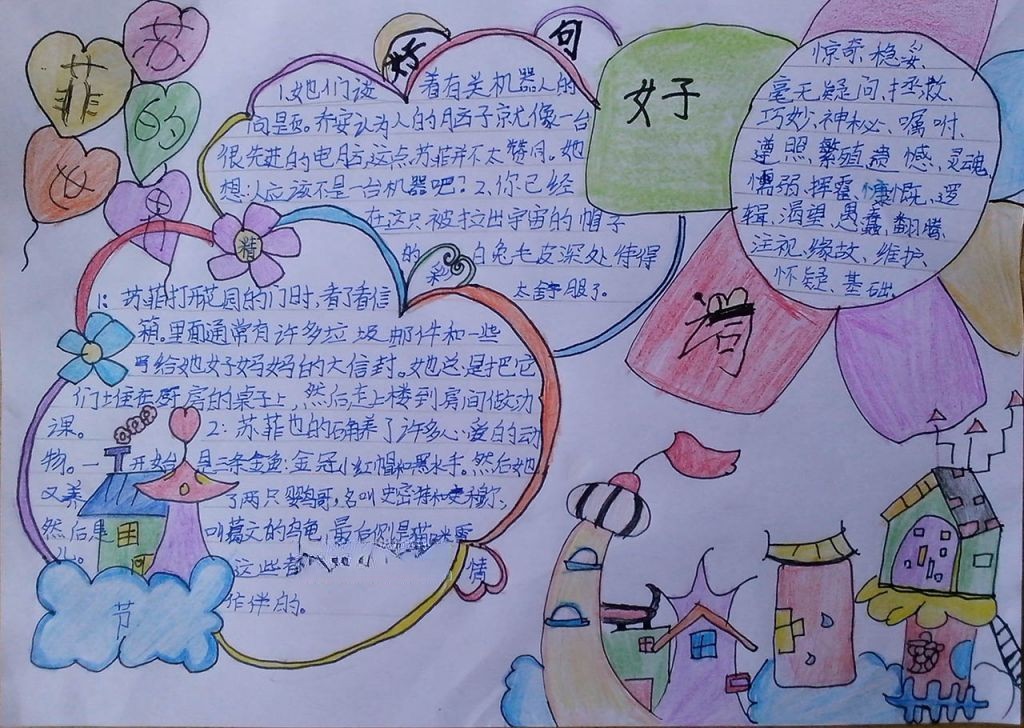 苏
菲
的
世
界
好
句
1.她们谈着有关机器人的
问题。乔安认为人的脑子就像一台
很先进的电脑,这点,苏菲并不太赞同。她
想:人应该不是一台机器吧?2、你已经
在这只被拉出宇宙的帽子
的白兔毛皮深处待得
太舒服了。
好子
词
惊奇、稳妥、
毫无疑问、拯救、
巧妙、神秘、嘱咐、
遵照、繁殖、遗憾、灵魂
懦弱、挥霍、慷慨、逻
辑、渴望、愚蠢、翻腾、
注视、缘故、维护、
怀疑、基础、
精
彩
情
节
1:苏菲打开花园的门时,看了看信
箱。里面通常有许多垃圾邮件和一些
写给她妈妈的大信封。她总是把它
们住在厨房的桌子上,然后走上楼到房间做功
课。2:苏菲也的确养了许多心爱的动
物。一开始是三条金鱼:金冠、小红帽和黑水手。然后她
又养了两只鹦鹉哥,名叫史密特和史穆尔,
然后是叫葛文的乌龟,最后则是猫咪雪
儿。这些都
作伴的。